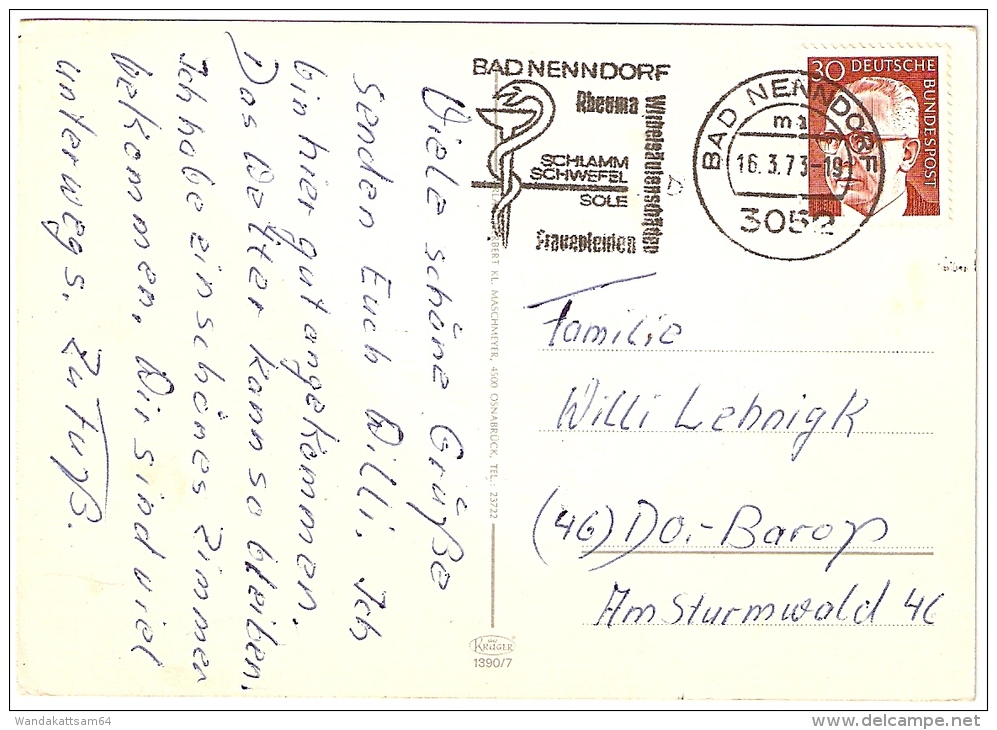 Viele schöne Grüße
senden Euch Willi. Ich
bin hier gut angekommen.
Das Wetter kann so bleiben.
Ich habe ein schönes Zimmer
bekommen. Wir sind viel
unterwegs. Zu Fuß.
BAD NENNDORF
Rheuma
Wirbelsäulenschäden
SCHLAMM
SCHWEFEL
SOLE
Frauenleiden
BAD NENNDORF
ma
16.3.73-19
3052
30 DEUTSCHE
BUNDESPOST
Familie
Willi Lehnigk
(46) Do.-Barop
Am Sturmwald 4c
KL. MASCHMEYER, 4500 OSNABRÜCK, TEL.: 23722
KRÜGER
1390/7
Wandakattsam64
delcampe.net